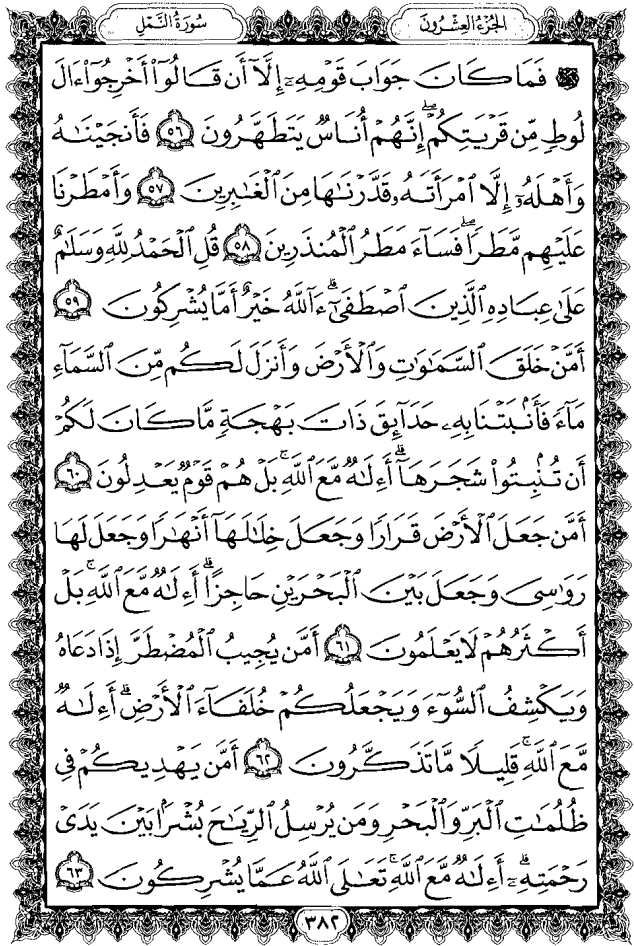 سُورَةُ النَّمْلِ
الجُزْءُ العِشْرُونَ
۞ فَمَا كَانَ جَوَابَ قَوْمِهِۦٓ إِلَّآ أَن قَالُوٓا۟ أَخْرِجُوٓا۟ ءَالَ
لُوطٍ مِّن قَرْيَتِكُمْ ۖ إِنَّهُمْ أُنَاسٌ يَتَطَهَّرُونَ ٥٦ فَأَنجَيْنَٰهُ
وَأَهْلَهُۥٓ إِلَّا ٱمْرَأَتَهُۥ قَدَّرْنَٰهَا مِنَ ٱلْغَٰبِرِينَ ٥٧ وَأَمْطَرْنَا
عَلَيْهِم مَّطَرًا ۖ فَسَآءَ مَطَرُ ٱلْمُنذَرِينَ ٥٨ قُلِ ٱلْحَمْدُ لِلَّهِ وَسَلَٰمٌ
عَلَىٰ عِبَادِهِ ٱلَّذِينَ ٱصْطَفَىٰٓ ۗ ءَآللَّهُ خَيْرٌ أَمَّا يُشْرِكُونَ ٥٩
أَمَّنْ خَلَقَ ٱلسَّمَٰوَٰتِ وَٱلْأَرْضَ وَأَنزَلَ لَكُم مِّنَ ٱلسَّمَآءِ
مَآءً فَأَنۢبَتْنَا بِهِۦ حَدَآئِقَ ذَاتَ بَهْجَةٍ مَّا كَانَ لَكُمْ
أَن تُنۢبِتُوا۟ شَجَرَهَآ ۗ أَءِلَٰهٌ مَّعَ ٱللَّهِ ۚ بَلْ هُمْ قَوْمٌ يَعْدِلُونَ ٦٠
أَمَّن جَعَلَ ٱلْأَرْضَ قَرَارًا وَجَعَلَ خِلَٰلَهَآ أَنْهَٰرًا وَجَعَلَ لَهَا
رَوَٰسِىَ وَجَعَلَ بَيْنَ ٱلْبَحْرَيْنِ حَاجِزًا ۗ أَءِلَٰهٌ مَّعَ ٱللَّهِ ۚ بَلْ
أَكْثَرُهُمْ لَا يَعْلَمُونَ ٦١ أَمَّن يُجِيبُ ٱلْمُضْطَرَّ إِذَا دَعَاهُ
وَيَكْشِفُ ٱلسُّوٓءَ وَيَجْعَلُكُمْ خُلَفَآءَ ٱلْأَرْضِ ۗ أَءِلَٰهٌ
مَّعَ ٱللَّهِ ۚ قَلِيلًا مَّا تَذَكَّرُونَ ٦٢ أَمَّن يَهْدِيكُمْ فِى
ظُلُمَٰتِ ٱلْبَرِّ وَٱلْبَحْرِ وَمَن يُرْسِلُ ٱلرِّيَٰحَ بُشْرًۢا بَيْنَ يَدَىْ
رَحْمَتِهِۦٓ ۗ أَءِلَٰهٌ مَّعَ ٱللَّهِ ۚ تَعَٰلَى ٱللَّهُ عَمَّا يُشْرِكُونَ ٦٣
٣٨٢